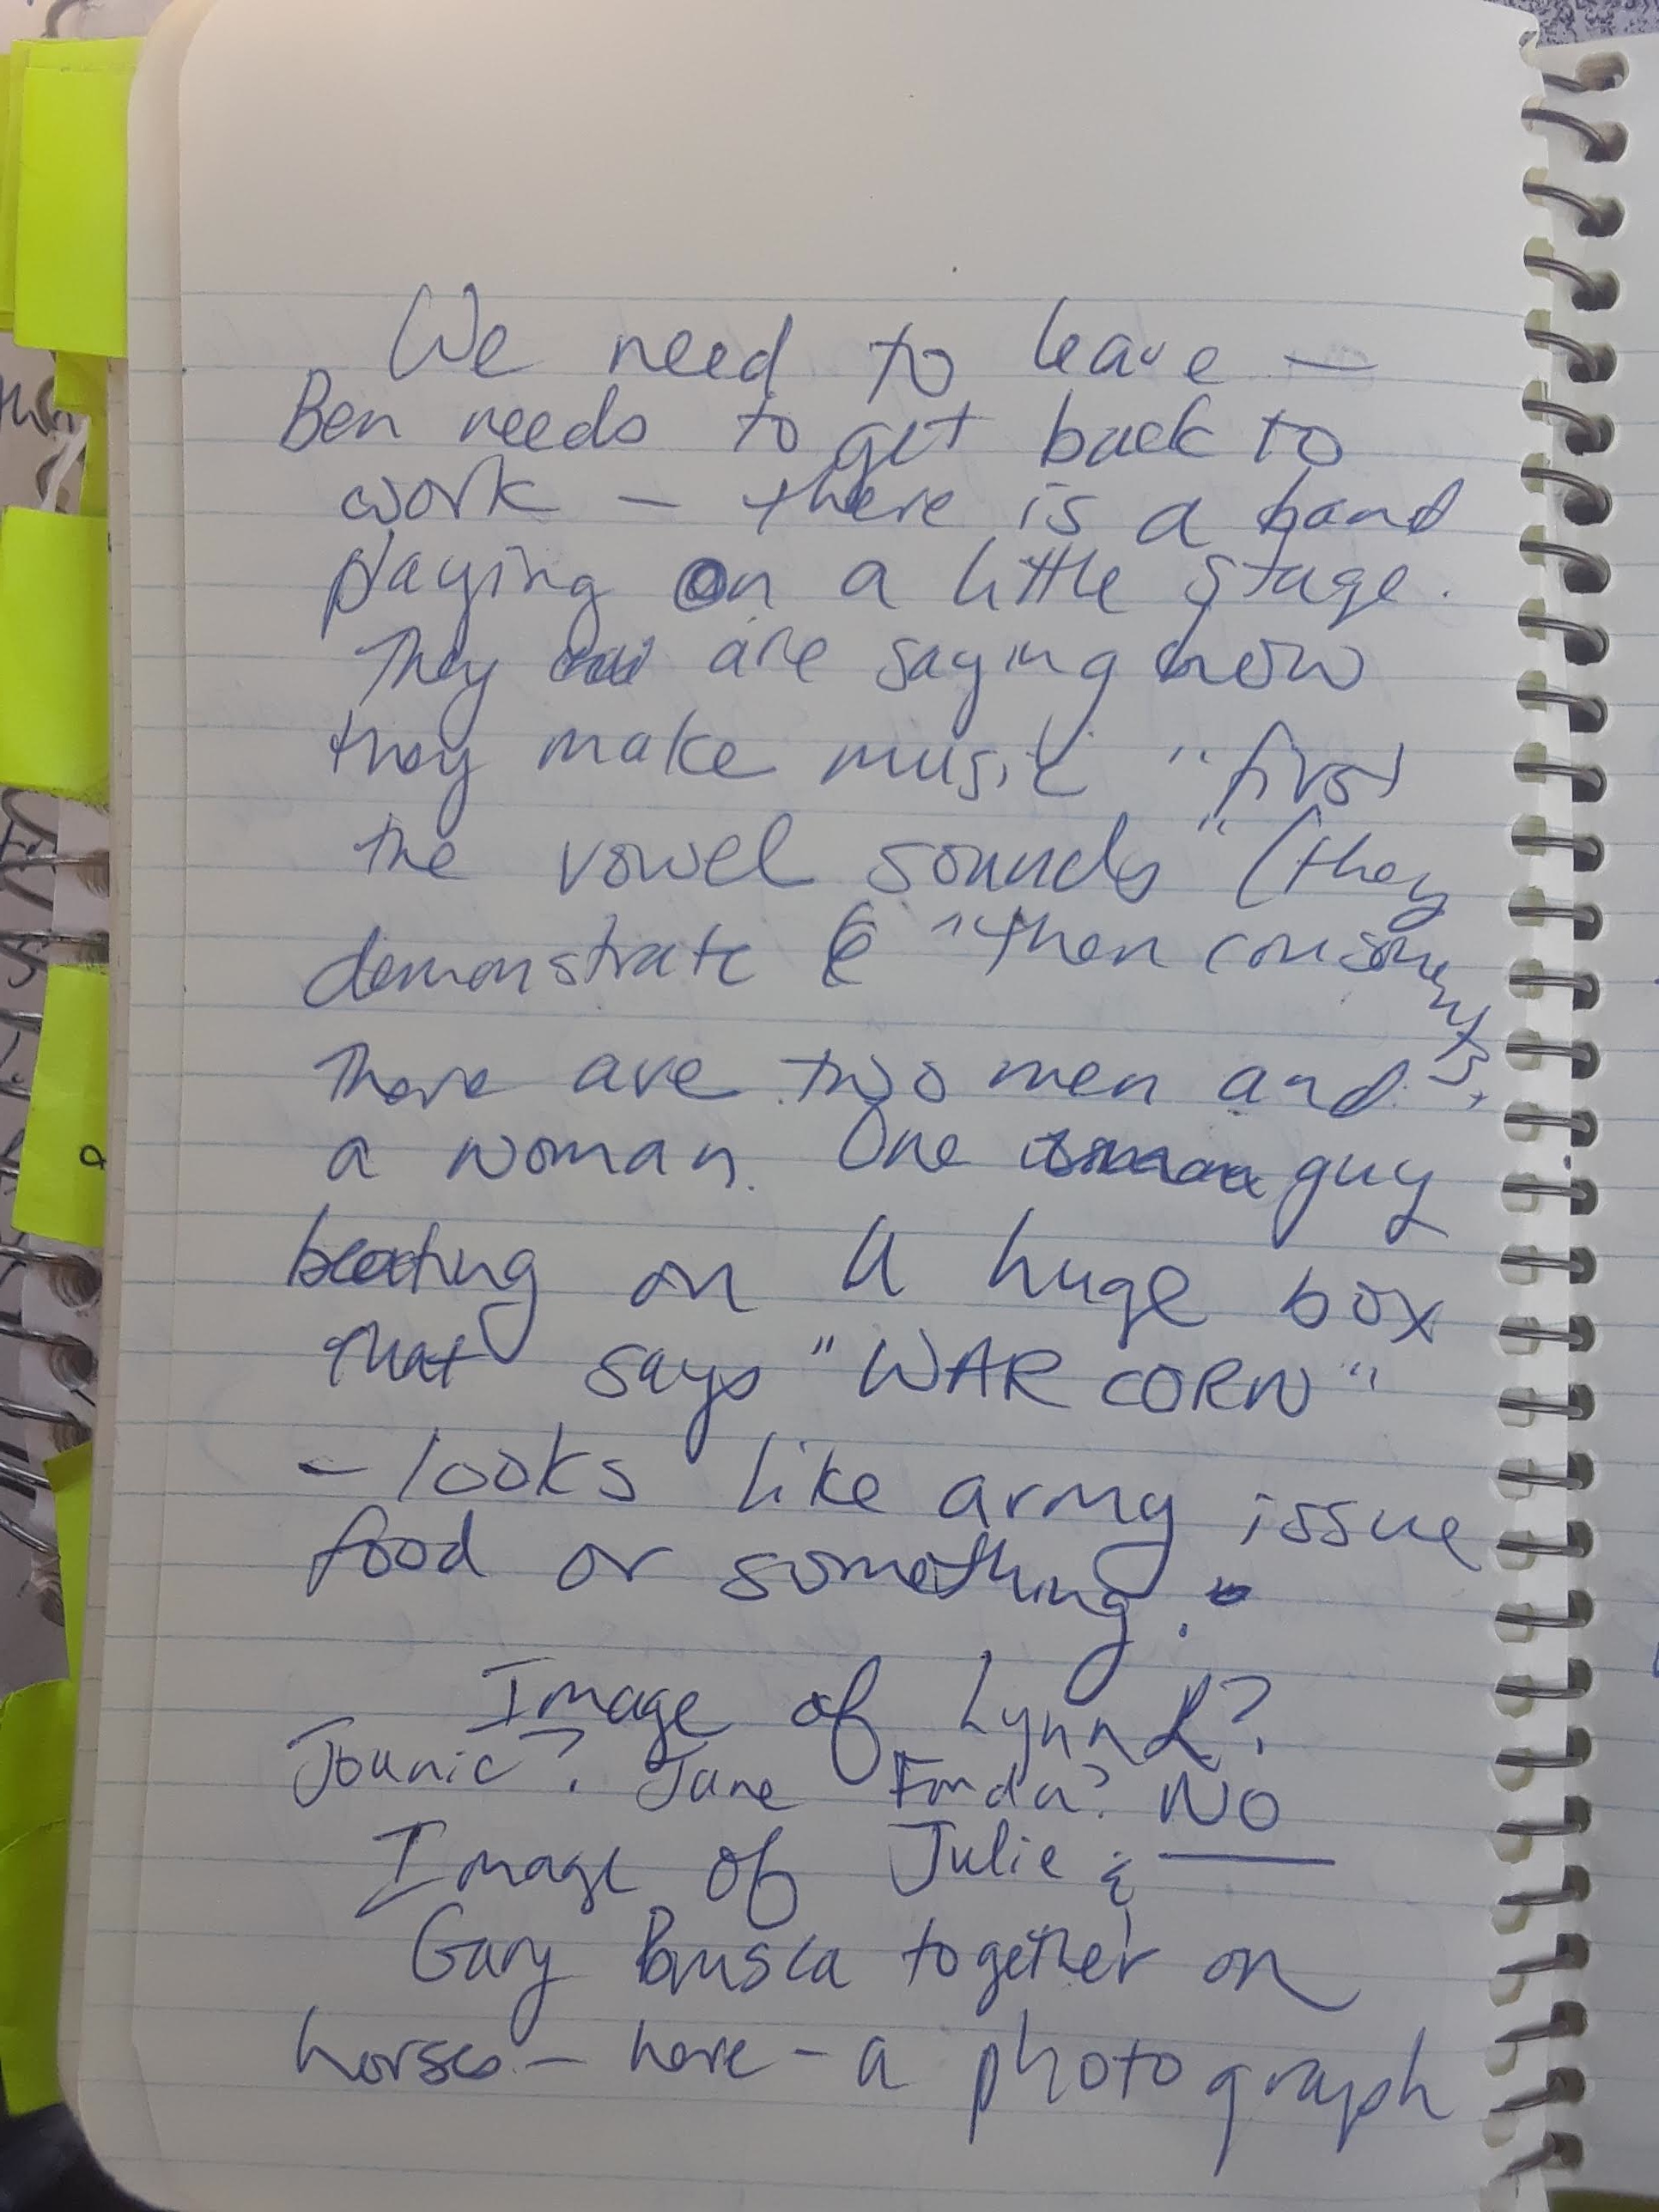 We need to leave —
Ben needs to get back to
work — there is a band
playing on a little stage.
They are saying how
they make music "first
the vowel sounds" (they
demonstrate & "then consonents.
There are two men and
a woman. One guy
beating on a huge box
that says "WAR CORN"
- looks like army issue
food or something.
Image of Lynn R?
Jane Fonda? NO
Image of Julie &
Gary Brusca together on
horses - here - a photograph